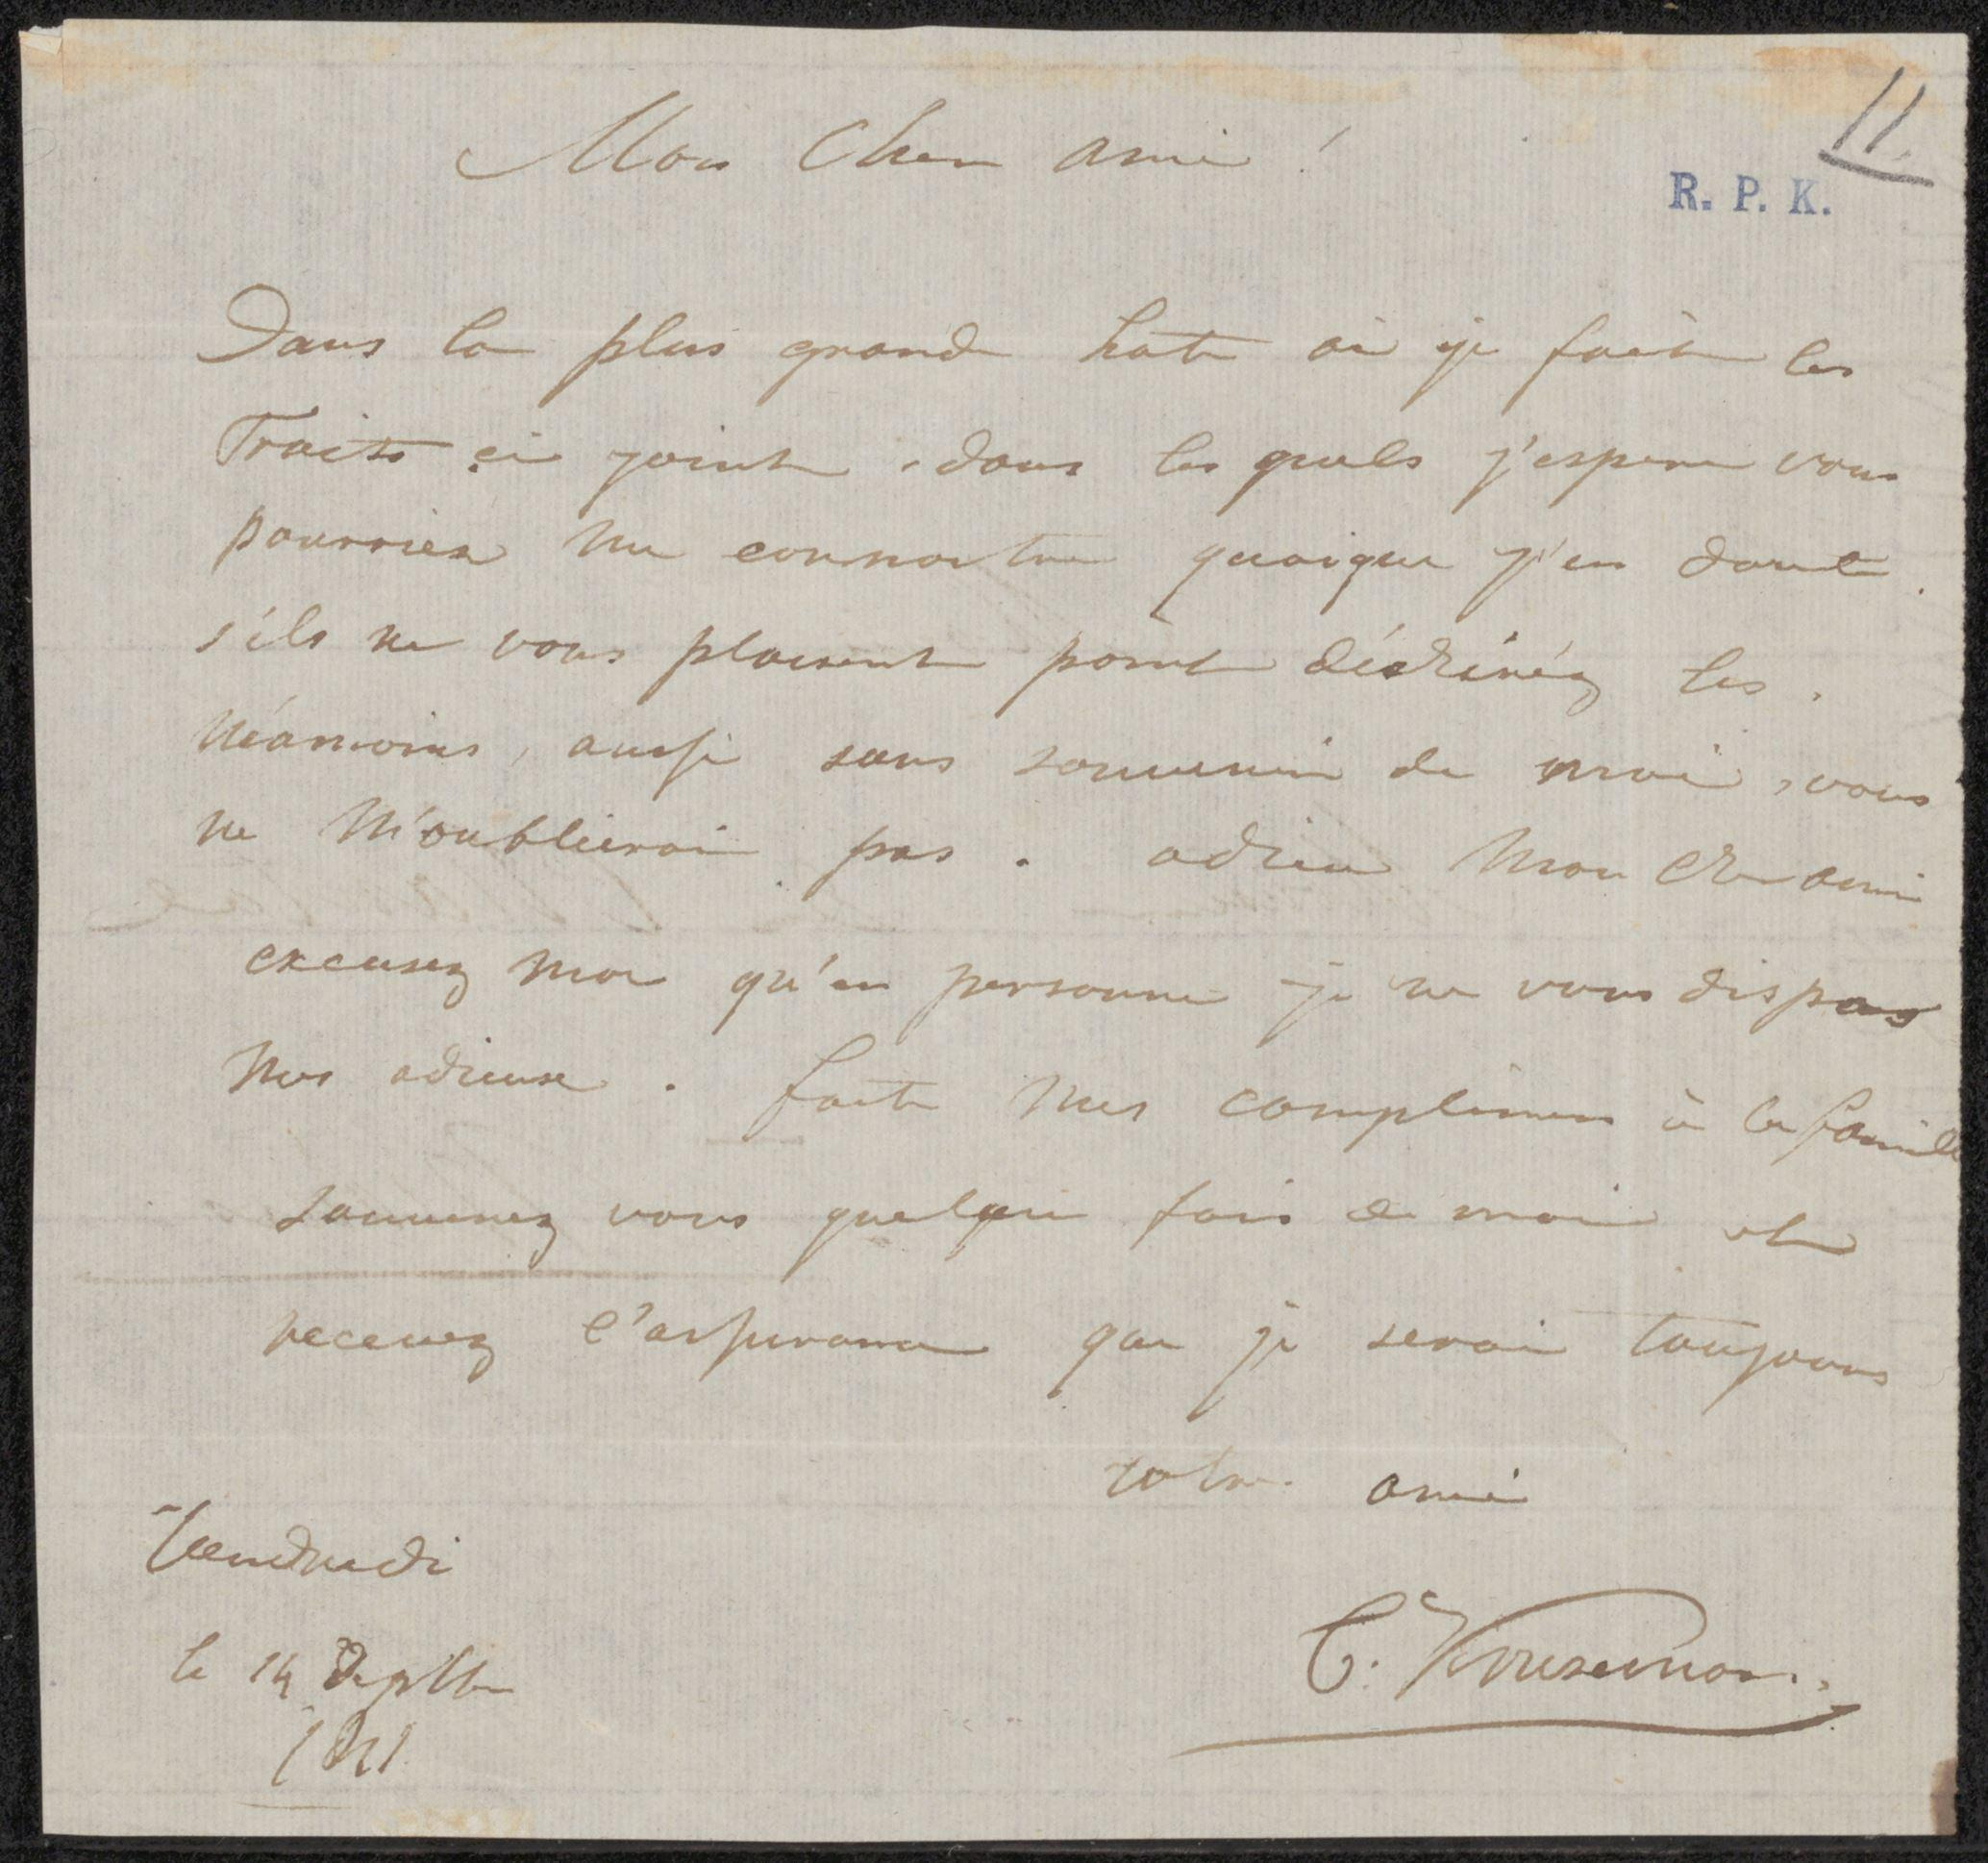 11.
R. P. K.
Mon Cher ami !
Dans la plus grande hate ai je fait les
Traits ci joint, dans les quels j'espere vous
pourriez me connoitre quoique j'en doute.
s'ils ne vous plaisent point déchiréz les,
néanmoins, aussi sans souvenir de moi, vous
ne m'oublierai pas. adieu Mon Cher ami
excusez moi qu'en personne je ne vous dis pas
mes adieux. faite mes complimens à la famille
souvenez vous quelque fois de moi et
recevez l'assurance que je serai toujours
votre ami
Vendredi
le 14 Septbr
C. Kruseman.